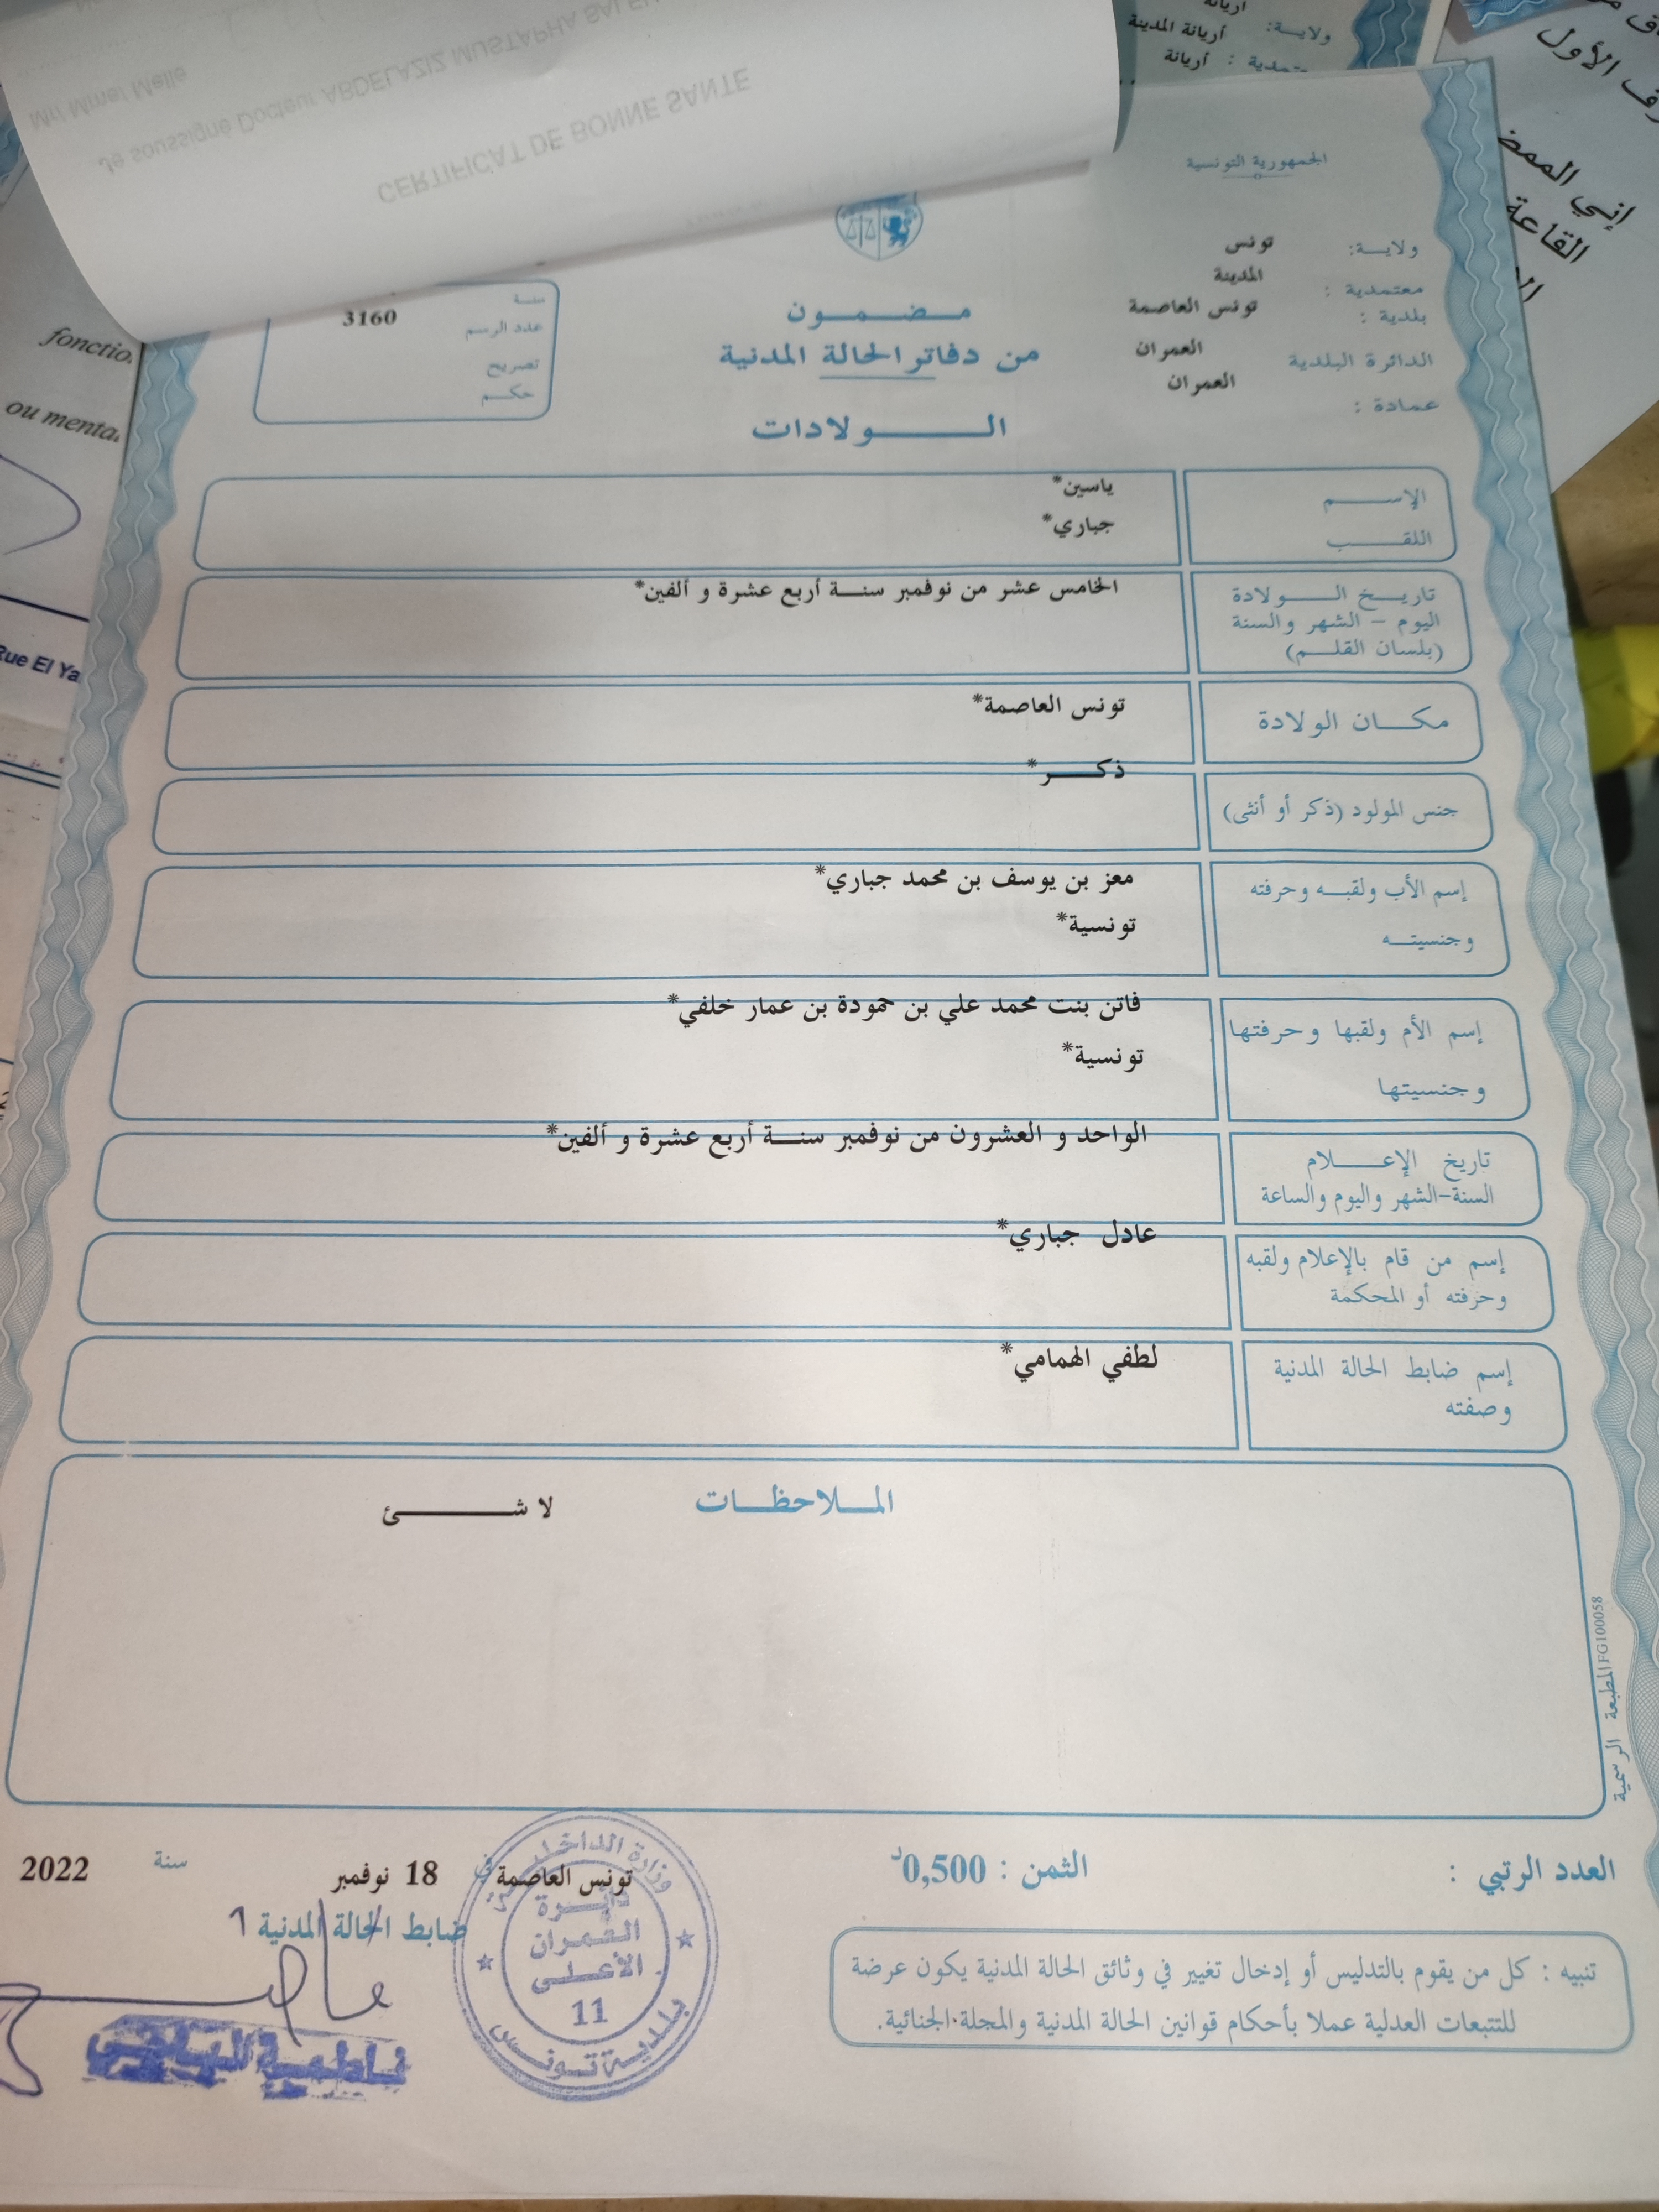 CERTIFICAT DE BONNE SANTE
Je soussigné Docteur ABDELAZIZ MUSTAPHA
Mr/ Mme/ Melle
أريانة
ولايــة: أريانة المدينة
أريانة
إني
القاعة
fonctio
ou menta
Rue El Ya
الجمهورية التونسية
ولايــة: تونس
معتمدية : المدينة
بلدية : تونس العاصمة
الدائرة البلدية العمران
عمادة : العمران
مــضــمــون
من دفاتر الحالة المدنية
الــــولادات
سنة
عدد الرسم 3160
تصريح
حكــم
الإســــم ياسين*
اللقــــب جباري*
تاريــخ الــــولادة الخامس عشر من نوفمبر سنــة أربع عشرة و ألفين*
اليوم – الشهر والسنة
(بلسان القلــم)
مكـــان الولادة تونس العاصمة*
جنس المولود (ذكر أو أنثى) ذكــــر*
إسم الأب ولقبــه وحرفته معز بن يوسف بن محمد جباري*
وجنسيتــه تونسية*
إسم الأم ولقبها وحرفتها فاتن بنت محمد علي بن حمودة بن عمار خلفي*
وجنسيتها تونسية*
تاريخ الإعــــلام الواحد و العشرون من نوفمبر سنــة أربع عشرة و ألفين*
السنة-الشهر واليوم والساعة
إسم من قام بالإعلام ولقبه عادل جباري*
وحرفته أو المحكمة
إسم ضابط الحالة المدنية لطفي الهمامي*
وصفته
المــلاحظــات لا شــــــئ
المطبعة الرسمية FG100058
العدد الرتبي :
الثمن : 0,500د
تونس العاصمة في 18 نوفمبر سنة 2022
ضابط الحالة المدنية
وزارة الداخلية
دائــرة
العمران
الأعلــى
11
بلدية تونس
تنبيه : كل من يقوم بالتدليس أو إدخال تغيير في وثائق الحالة المدنية يكون عرضة
للتتبعات العدلية عملا بأحكام قوانين الحالة المدنية والمجلة الجنائية.